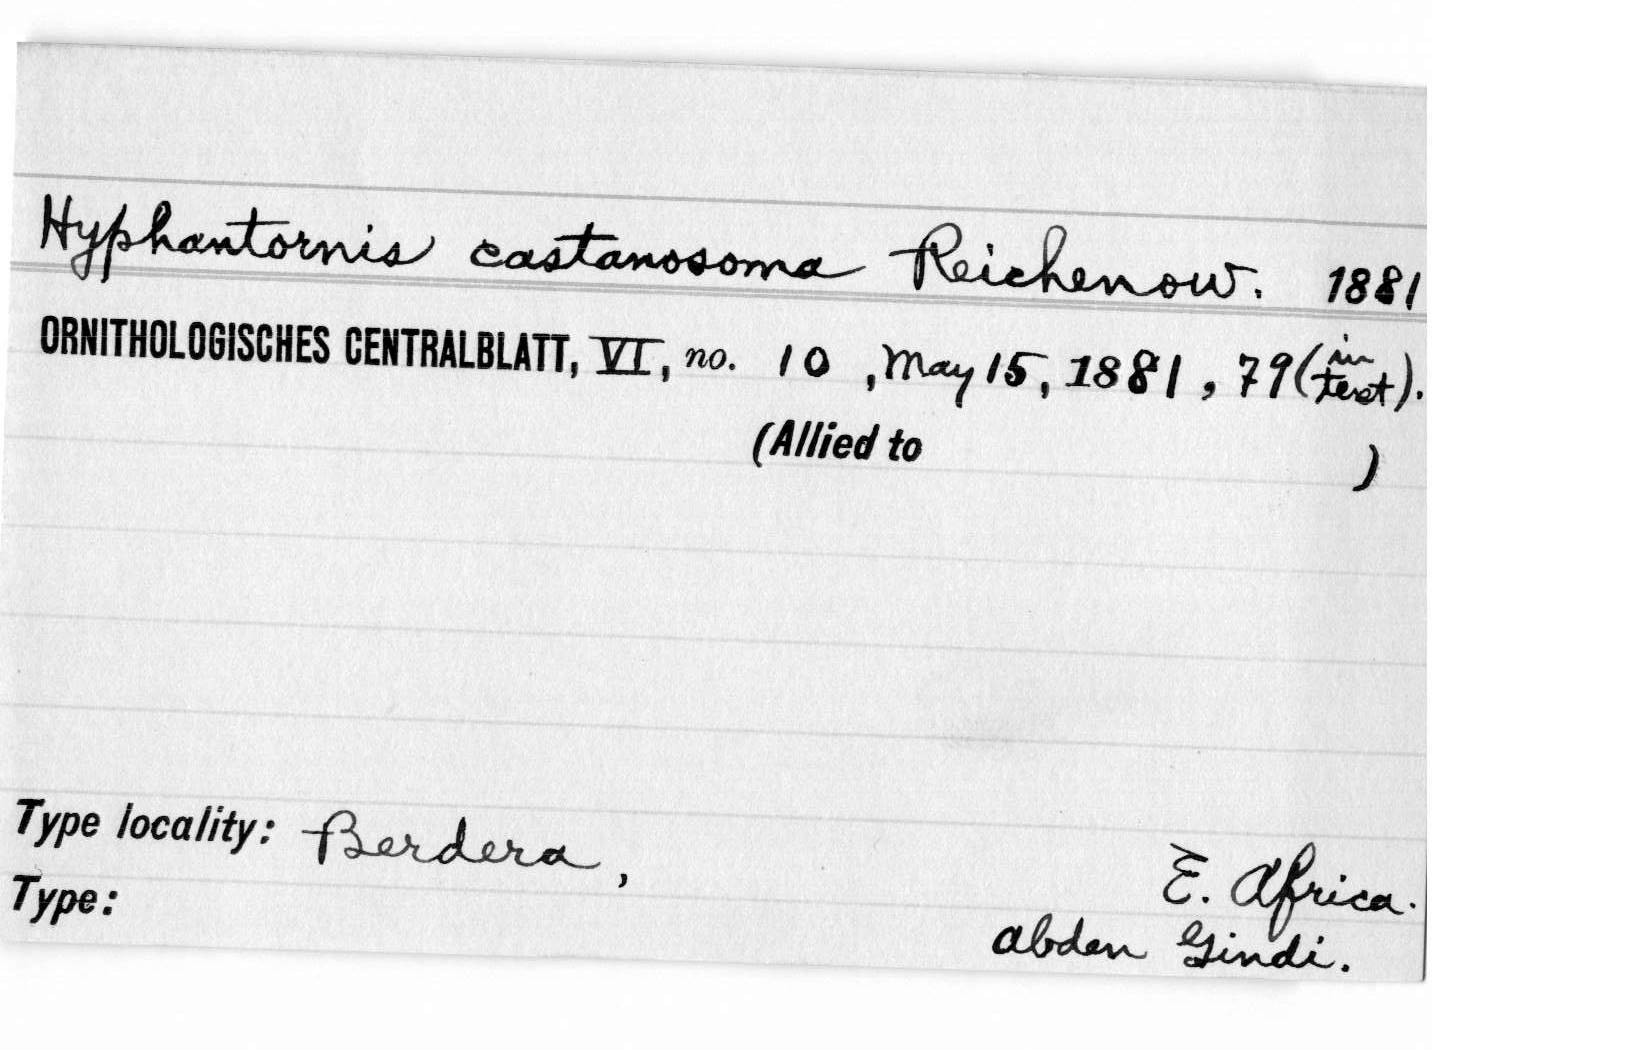 Hyphantornis castanosoma Reichenow. 1881
ORNITHOLOGISCHES CENTRALBLATT, VI, no. 10, May 15, 1881, 79 (in text).
(Allied to )
Type locality: Berdera, E. Africa.
Type: Abdan Gindi.